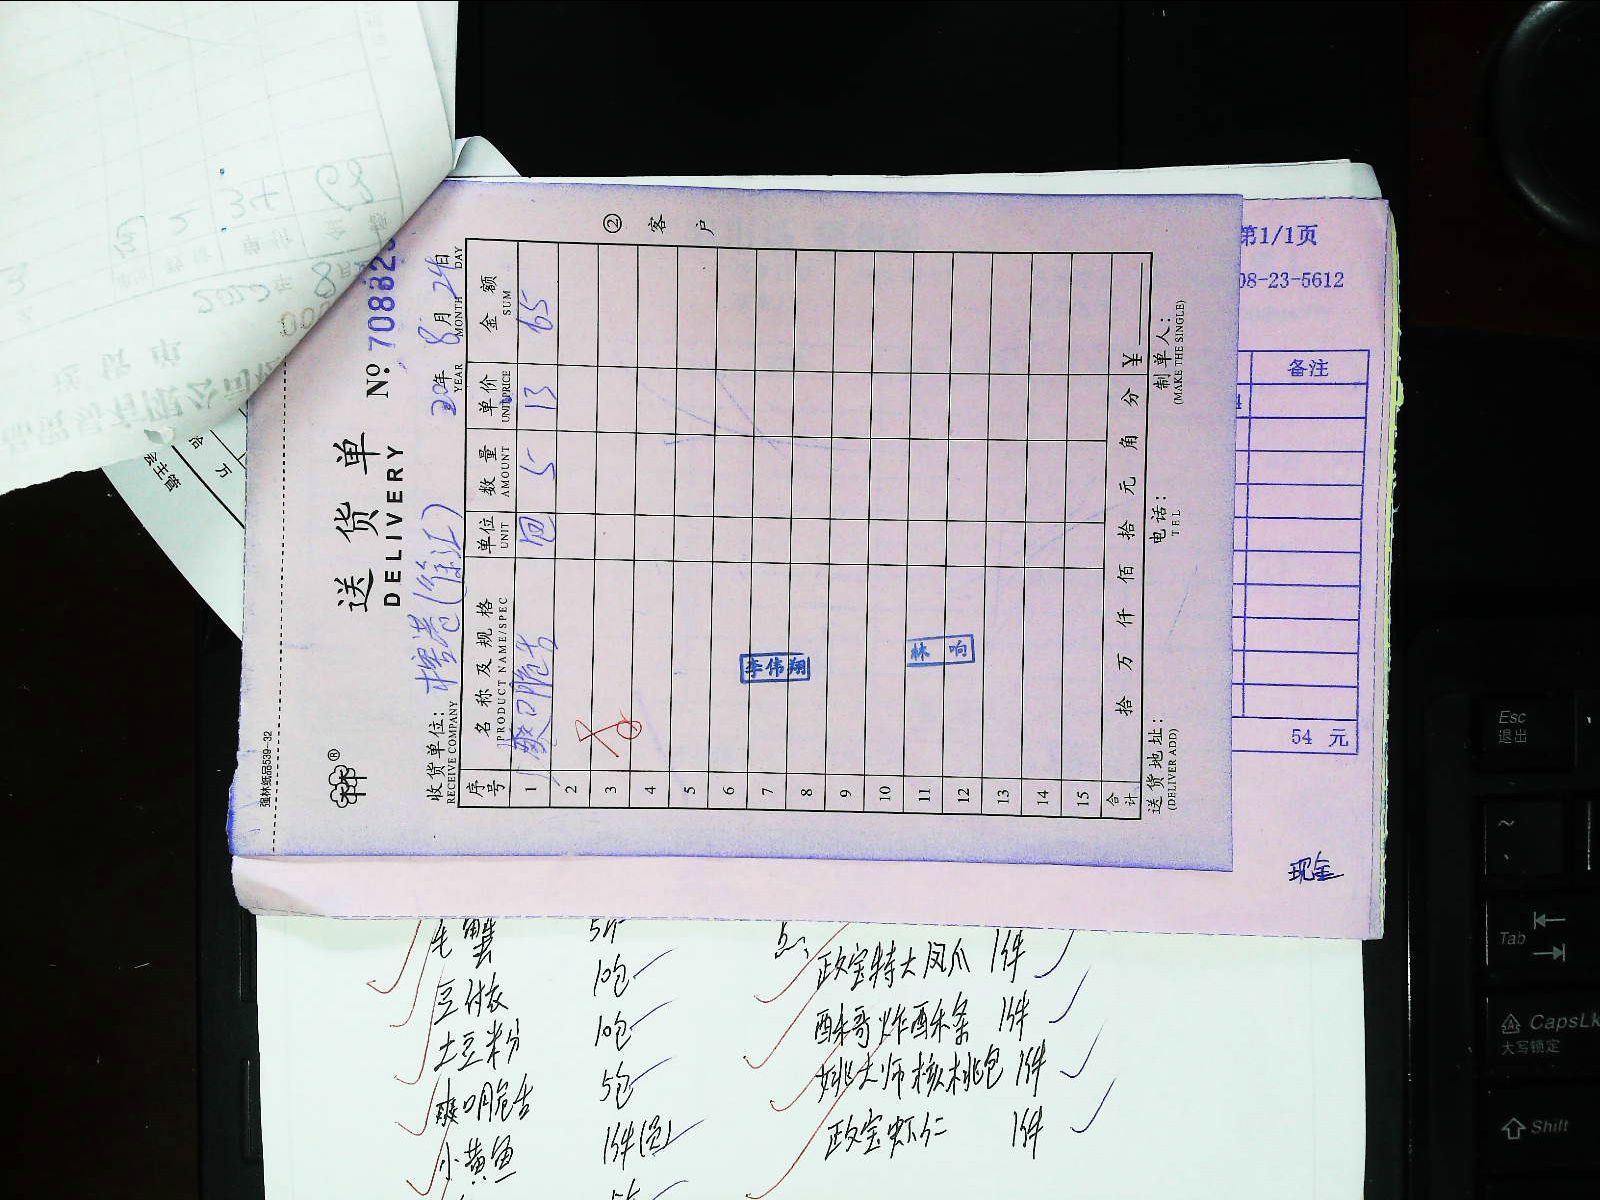 强林纸品539-32
送货单
DELIVERY
No 708823
收货单位：
RECEIVE COMPANY
22年 8月 24日
YEAR MONTH DAY
② 客户
序号 名称及规格 单位 数量 单价 金额
PRODUCT NAME/SPEC UNIT AMOUNT UNIT PRICE SUM
1 爽口脆舌 包 5 13 65
2
3
4
5
6
7
8
9
10
11
12
13
14
15
李伟翔
林响
合计 拾 万 仟 佰 拾 元 角 分 ¥
送货地址： 电话： 制单人：
(DELIVER ADD) TEL (MAKE THE SINGLE)
第1/1页
08-23-5612
备注
54 元
现金
毛蟹 5个
豆付衣 10包
土豆粉 10包
爽口脆舌 5包
小黄鱼 1件(包)
政宝特大凤爪 1件
酥哥炸酥条 1件
姚大师核桃包 1件
政宝虾仁 1件
会主管
Esc
退出
Tab
CapsLk
大写锁定
Shift